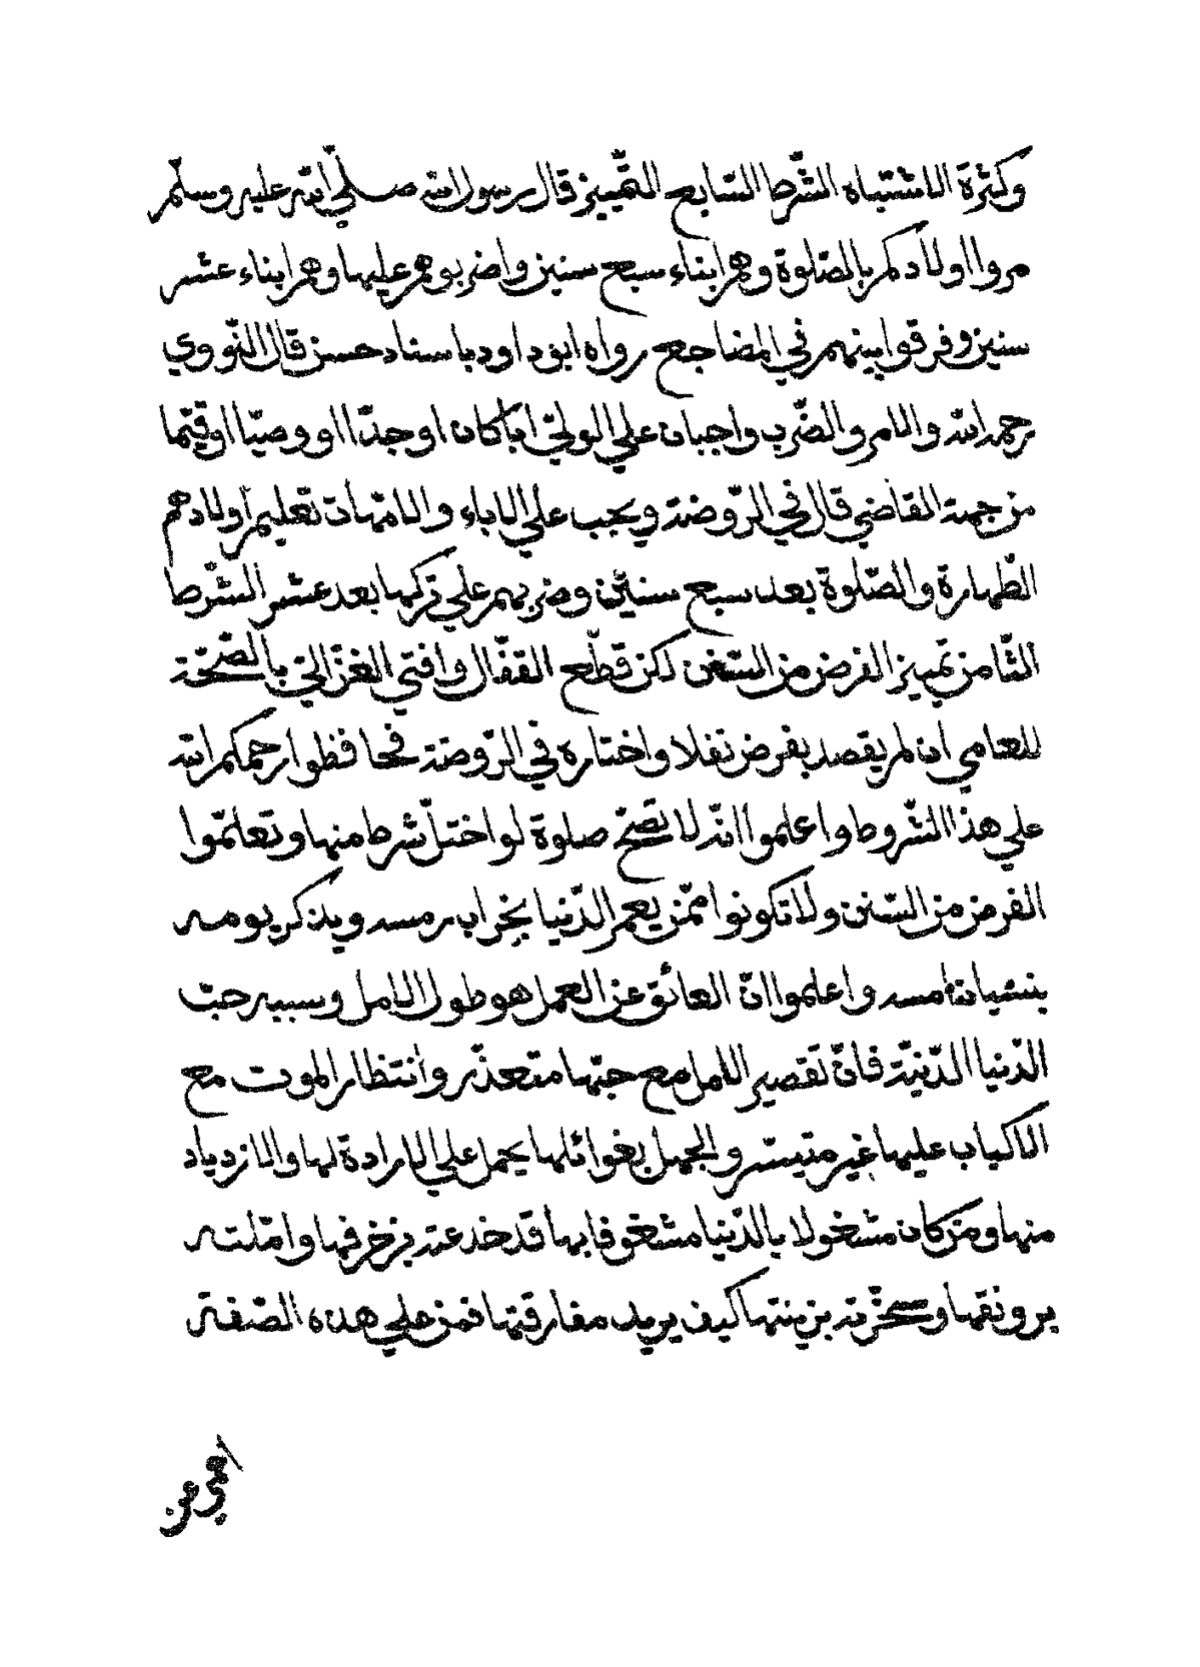 وكثرة الاشتباه الشّرط السّابع التّمييز قال رسول الله صلّي الله عليه وسلّم
مروا اولادكم بالصّلوة وهم ابناء سبع سنين واضربوهم عليها وهم ابناء عشر
سنين وفرقوا بينهم في المضاجع رواه ابو داود باسناد حسن قال النّووي
رحمه الله والامر والضّرب واجبان علي الولي ابا كان او جدّا او وصيّا او قيّما
من جهة القاضي قال في الرّوضة ويجب علي الاباء والامّهات تعليم أولادهم
الطّهارة والصّلوة بعد سبع سنين وضربهم علي تركها بعد عشر الشّرط
الثّامن تمييز الفرض من السّنن لكن قطّع القفّال وافتي الغزّالي بالصّحّة
للعامي ان لم يقصد بفرض نفلا واختاره في الرّوضة فحافظوا رحمكم الله
علي هذا الشّروط واعلموا انّه لا تصحّ صلوة لو اختلّ شرط منها وتعلّموا
الفرض من السّنن ولا تكونوا ممّن يعمر الدّنيا بخراب رمسه ويذكر يومه
بنسيان امسه واعلموا انّ العائق عن العمل هو طول الامل وسببه حبّ
الدّنيا الدّنيّة فانّ تقصير الامل مع حبّها متعذّر وانتظار الموت مع
الاكباب عليها غير متيسّر والجهل بغوائلها يحمل علي الارادة لها والازدياد
منها ومن كان مشغولا بالدّنيا مشغوفا بها قد خدعته بزخرفها وامّلته
برونقها وسخّرته بزينتها كيف يريد مفارقتها فمن علي هذه الصّفة
اعمي عن